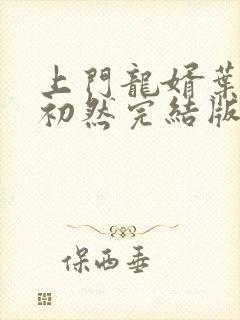 上門龍婿葉
初然完結版
保西垂